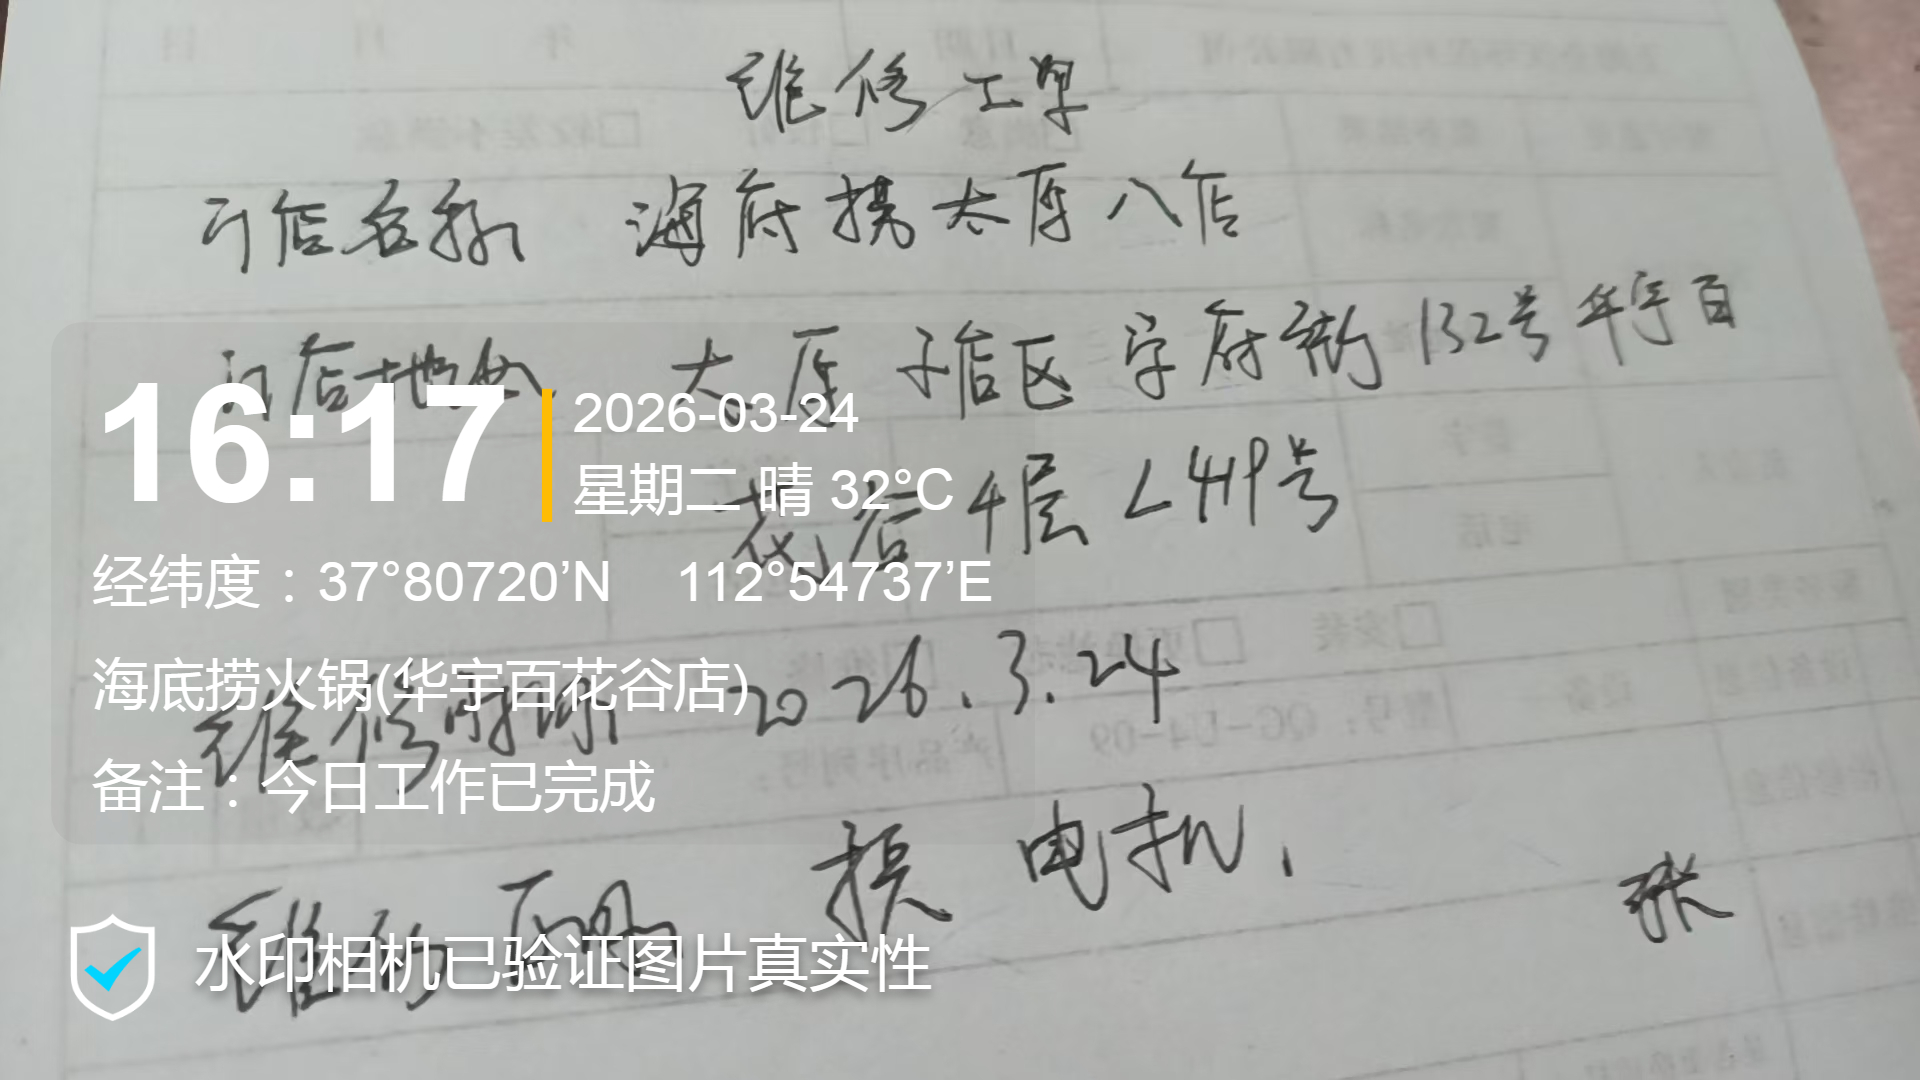 维修工单
门店名称 海府捞太原八店
门店地址 太原小店区学府街132号华宇百
花谷4层L419号
16:17
2026-03-24
星期二 晴 32°C
经纬度：37°80720’N 112°54737’E
海底捞火锅(华宇百花谷店)
维修时间 2026.3.24
备注：今日工作已完成
维修 换电机.
张
水印相机已验证图片真实性